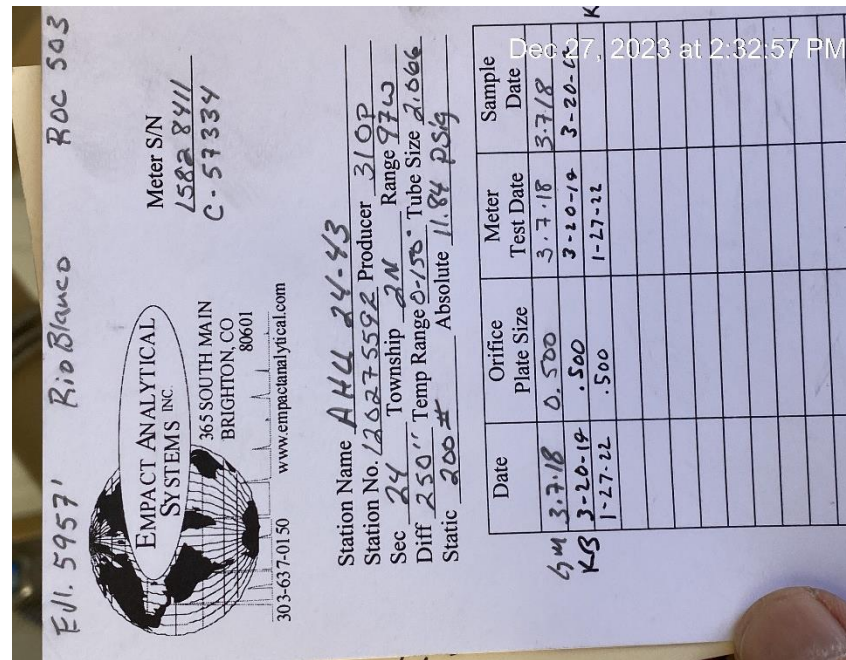 Elv. 5957' Rio Blanco ROC 503
EMPACT ANALYTICAL
SYSTEMS INC.
365 SOUTH MAIN
BRIGHTON, CO
80601
303-637-0150 www.empactanalytical.com
Meter S/N
1582 8411
C-57334
Station Name AHU 24-43
Station No. 120275592 Producer 310P
Sec 24 Township 2N Range 97W
Diff 250" Temp Range 0-150° Tube Size 2.066
Static 200# Absolute 11.84 PSIG
Date Orifice Plate Size Meter Test Date Sample Date
GM 3.7.18 0.500 3.7.18 3.7.18
KB 3-20-19 .500 3-20-19 3-20-19
1-27-22 .500 1-27-22
K
Dec 27, 2023 at 2:32:57 PM